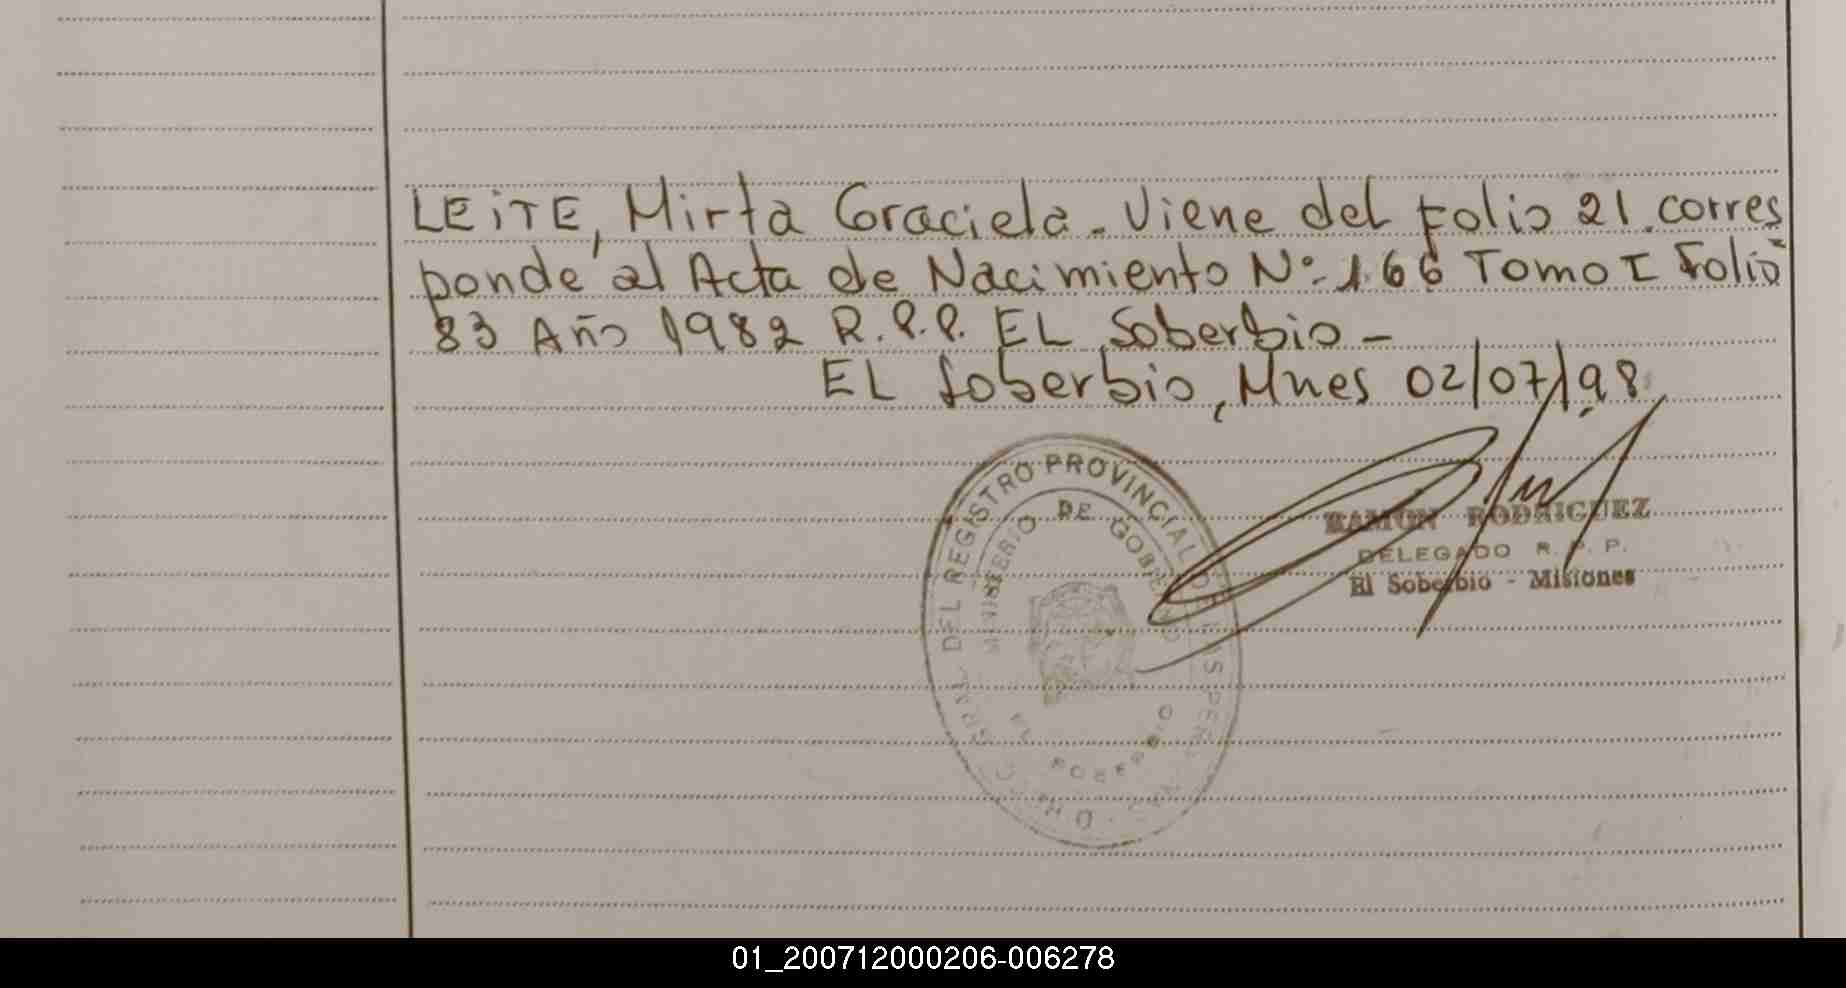 LEiTE, Mirta Graciela. Viene del Folio 21. corres
ponde al Acta de Nacimiento Nº. 166 Tomo I Folio
83 Año 1982 R.P.P. EL Soberbio -
EL Soberbio, Mnes 02/07/98
DEL REGISTRO PROVINCIAL DE LAS PER
MINISTERIO DE GOBIERNO
EL SOBERBIO
RAMON RODRIGUEZ
DELEGADO R. P. P.
El Soberbio - Misiones
01_200712000206-006278